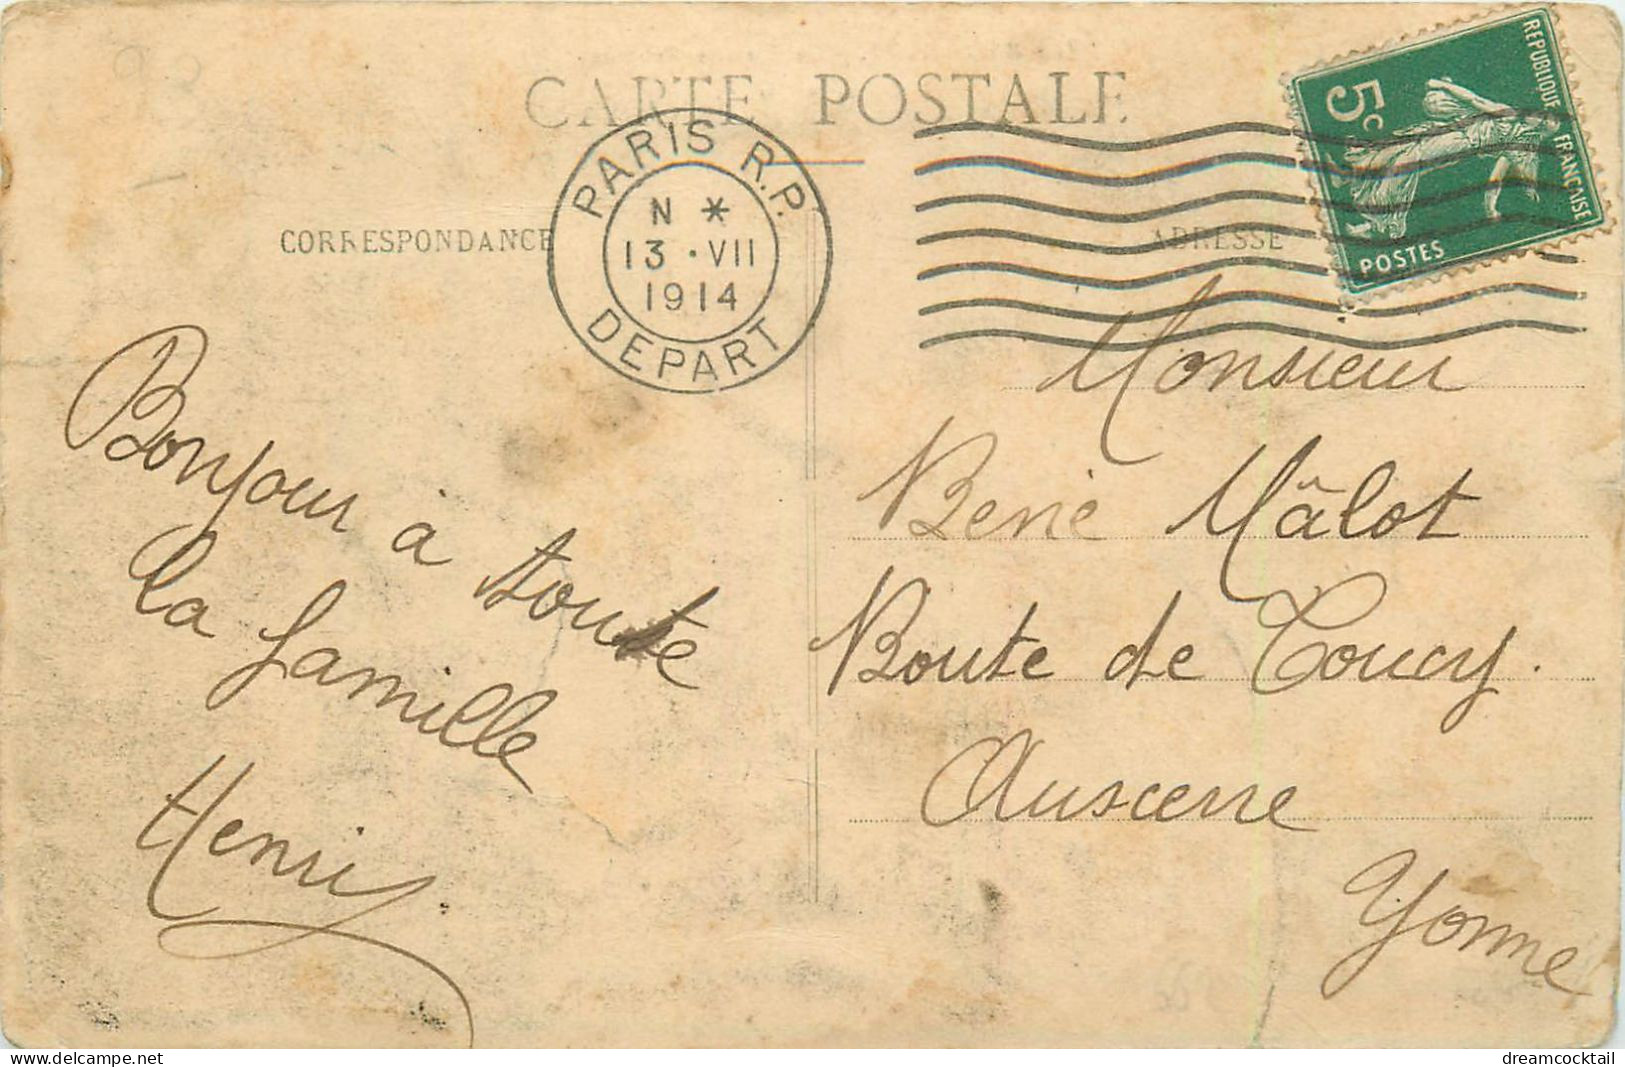 CARTE POSTALE
CORRESPONDANCE
ADRESSE
PARIS R.P.
N *
13 · VII
1914
DEPART
REPUBLIQUE FRANÇAISE
5c
POSTES
Bonjour à toute
la famille
Henri
Monsieur
René Mâlot
Route de Toucy.
Auxcerre
Yonne
delcampe.net
dreamcocktail